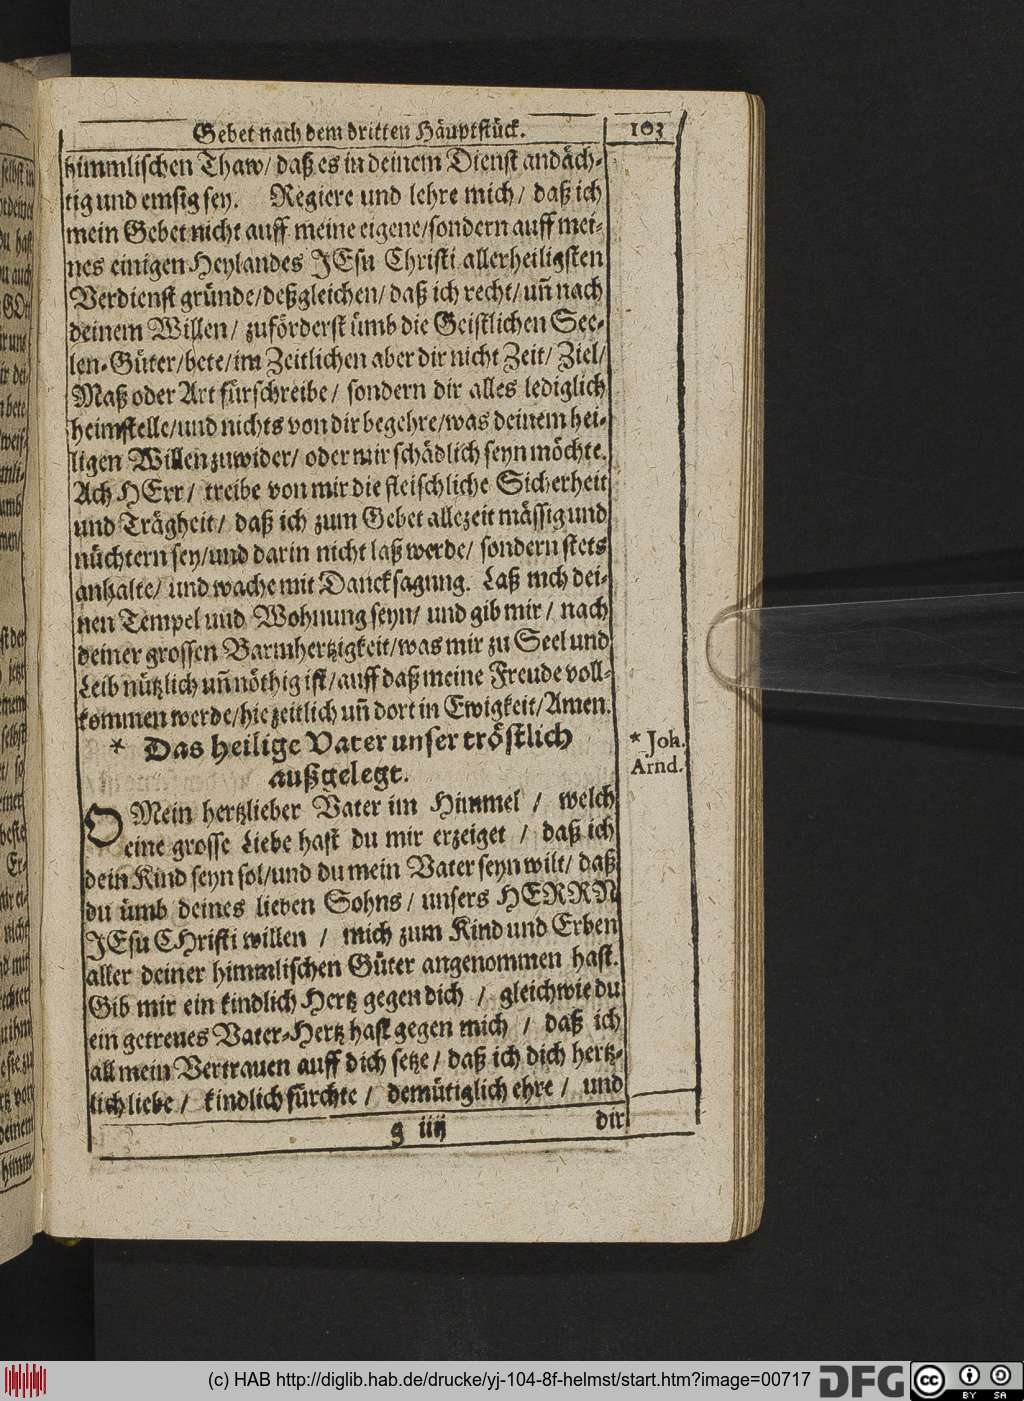 Gebet nach dem dritten Häuptstück. 103
himmlischen Thaw/ daß es in deinem Dienst andäch-
tig und emsig sey. Regiere und lehre mich/ daß ich
mein Gebet nicht auff meine eigene/sondern auff mei-
nes einigen Heylandes JEsu Christi allerheiligsten
Verdienst gründe/deßgleichen/ daß ich recht/ uñ nach
deinem Willen/ zuförderst ümb die Geistlichen See-
len-Güter/bete/im Zeitlichen aber dir nicht Zeit/ Ziel/
Maß oder Art fürschreibe/ sondern dir alles lediglich
heimstelle/und nichts von dir begehre/was deinem hei-
ligen Willen zuwider/ oder mir schädlich seyn möchte.
Ach HErr/ treibe von mir die fleischliche Sicherheit
und Trägheit/ daß ich zum Gebet allezeit mässig und
nüchtern sey/und darin nicht laß werde/ sondern stets
anhalte/ und wache mit Dancksagung. Laß mich dei-
nen Tempel und Wohnung seyn/ und gib mir/ nach
deiner grossen Barmhertzigkeit/was mir zu Seel und
Leib nützlich uñ nöthig ist/auff daß meine Freude voll-
kommen werde/hie zeitlich uñ dort in Ewigkeit/Amen.
* Das heilige Vater unser tröstlich
außgelegt.
* Joh.
Arnd.
O Mein hertzlieber Vater im Himmel / welch
eine grosse Liebe hast du mir erzeiget / daß ich
dein Kind seyn sol/und du mein Vater seyn wilt/ daß
du ümb deines lieben Sohns/ unsers HERRN
JEsu CHristi willen / mich zum Kind und Erben
aller deiner himmlischen Güter angenommen hast.
Gib mir ein kindlich Hertz gegen dich / gleich wie du
ein getreues Vater-Hertz hast gegen mich / daß ich
all mein Vertrauen auff dich setze/ daß ich dich hertz-
lich liebe/ kindlich fürchte/ demütiglich ehre/ und
g iiij dir
(c) HAB http://diglib.hab.de/drucke/yj-104-8f-helmst/start.htm?image=00717
DFG
cc BY SA